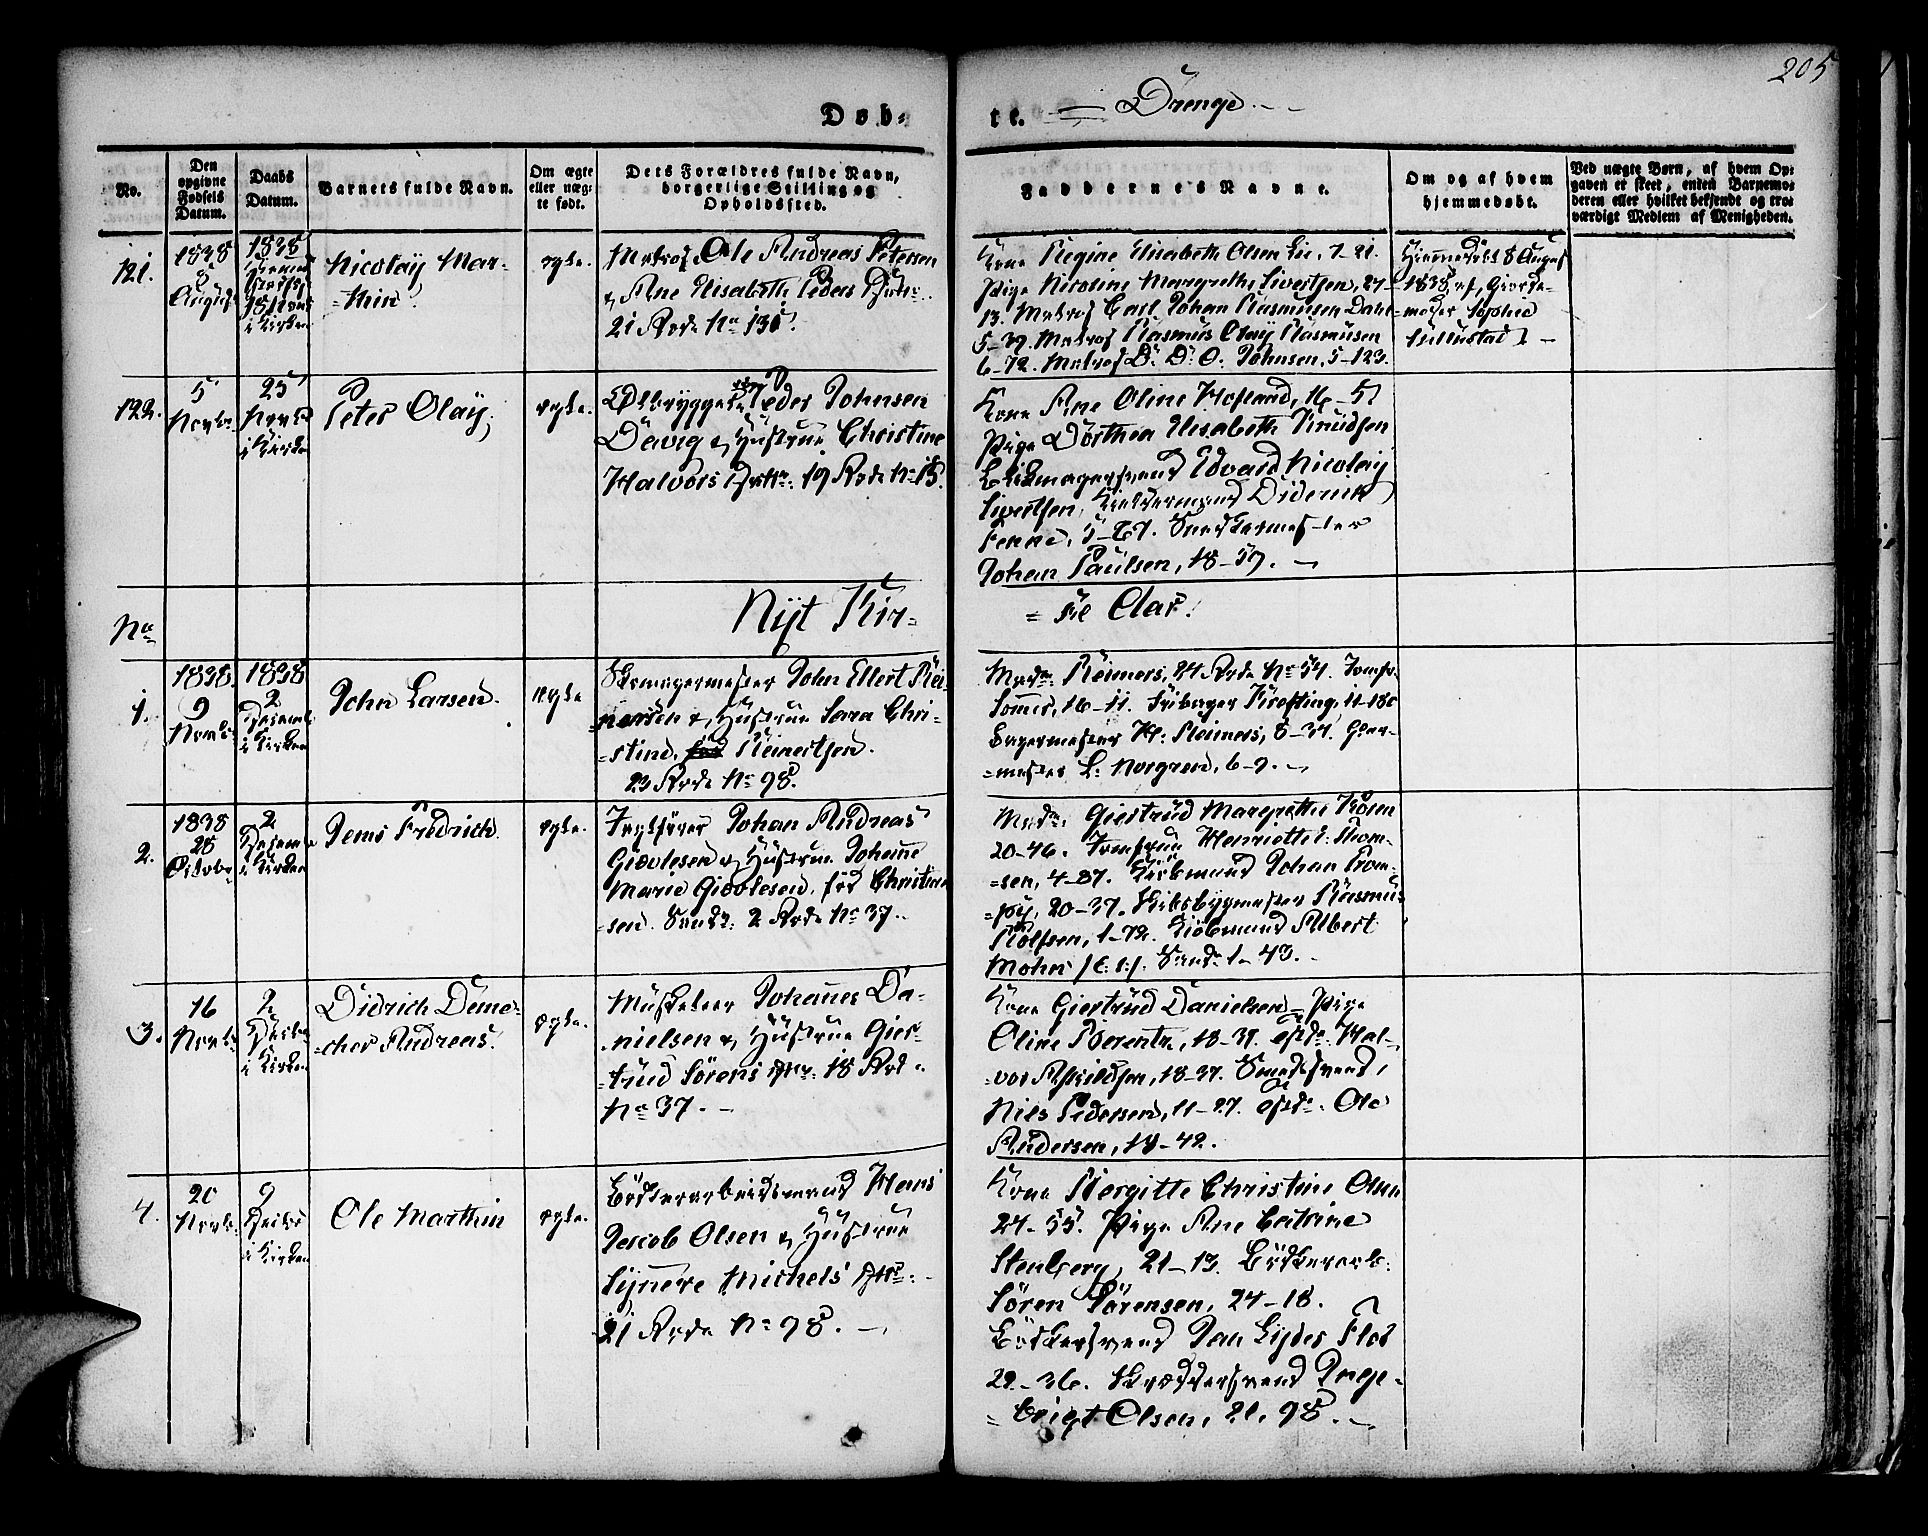 205
Døb-
te. Drenge.
No.
Den opgivne Fødsels Datum.
Daabs Datum.
Barnets fulde Navn.
Om ægte eller uægte født.
Dets Forældres fulde Navn, borgerlige Stilling og Opholdssted.
Faddernes Navne.
Om og af hvem hjemmedøbt.
Ved uægte Børn, af hvem Opgaven er skeet, enten Barnemoderen eller hvilket bekjendt og troværdigt Medlem af Menigheden.
121.
1838
8
August
1838
18
i Kirken
Nicolaÿ Mar-
thin
ægte.
Matros Ole Andreas Petersen
& Ane Elisabeth Peders
21 Rode No 138.
Kone Regine Elisabeth Olsen
Pige Nicoline Margrethe Sivertsen, 24-
13. Matros Carl Johan Rasmussen Dahl
5-39. Matros Rasmus Olaÿ Rasmusen
6-72. Matros D: D: O. Johnsen, 5-123.
Hiemmedøbt 8 August
1838 af Giorde-
moder Sophie
122.
5
Novbr
25
Novbr
i Kirken
Peter Olaÿ,
ægte.
Ølbrygger Peder Johnsen
& Hustrue Christine
Halvors 19 Rode No 15.
Kone Ane Oline Hofland, 16-5
Pige Dorthea Elisabeth Knudsen
Edvard Nicolaÿ
Sivertsen, Diderich
5-67. Snedkermester
Johan Paulsen, 18-59.
Nÿt Kir-
=ke Aar.
No
1.
1838
9
Novbr
1838
2
Decemb
i Kirken
John Larsen
Ægte
Skomagermester John Ellert Rei-
nersen & Hustrue Sara Chri-
=stine Reinertsen.
23 Rode No 98.
Mad: Reimers, 24 Rode No 54. Jomfr
Sommer, 16-11. Krefting, 11-180
Bagermester H: Reimers, 8-34.
=mester L: Norgreen, 6-9.
2.
1838
28
Octobr
2
Decemb
i Kirken
Jens Fredrich
ægte.
Johan Andreas
Giæblesen & Hustrue Johanne
Marie Giæblesen, fød Christen
=sen. 2 Rode No 37.
Mad: Giertrud Margrethe
20-46. Jomfrue Henriette E: Thom-
=sen, 4-87. Kiöbmand Johan From-
20-37. Skibsbygmester Rasmus
Rolfsen, 1-72. Kiöbmand Albert
Mohn 1-43.
3.
16
Novbr
2
Decbr
i Kirken
Didrich Deme-
=cher Andreas
Ægte.
Muskateer Johannes Da-
nielsen & Hustrue Gier-
=trud Sörens 18 Rode
No 37.
Kone Giertrud Danielsen Pige
Oline Berentz, 18-37. Hal-
=vor Askildsen, 18-37. Smedesvend
Nils Pedersen, 11-27. Ole
Andersen, 18-42.
4.
20
Novbr
9
Decbr
i Kirken
Ole Marthin
ægte.
Bödkerarbeidsmand Hans
Jacob Olsen & Hustrue
Sÿnere Michels
21 Rode No 98.
Kone Bergitte Christine Olsen
24-55. Pige Ane Catrine
Stenberg, 21-13. Bödkerarb:
Sören Sörensen, 24-18.
Bödkersvend Jan Lÿder
22-36. Skræddersvend Inge-
=brigt Olsen, 21. 98.